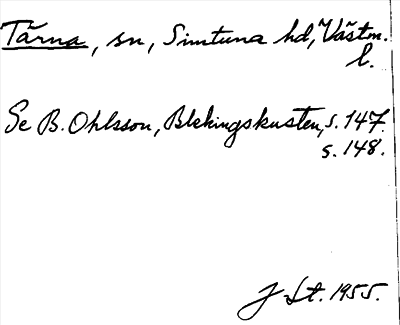 Tärna, sn, Simtuna hd, Västm.
l.
Se B. Ohlsson, Blekingskusten, s. 147.
s. 148.
J St. 1955.